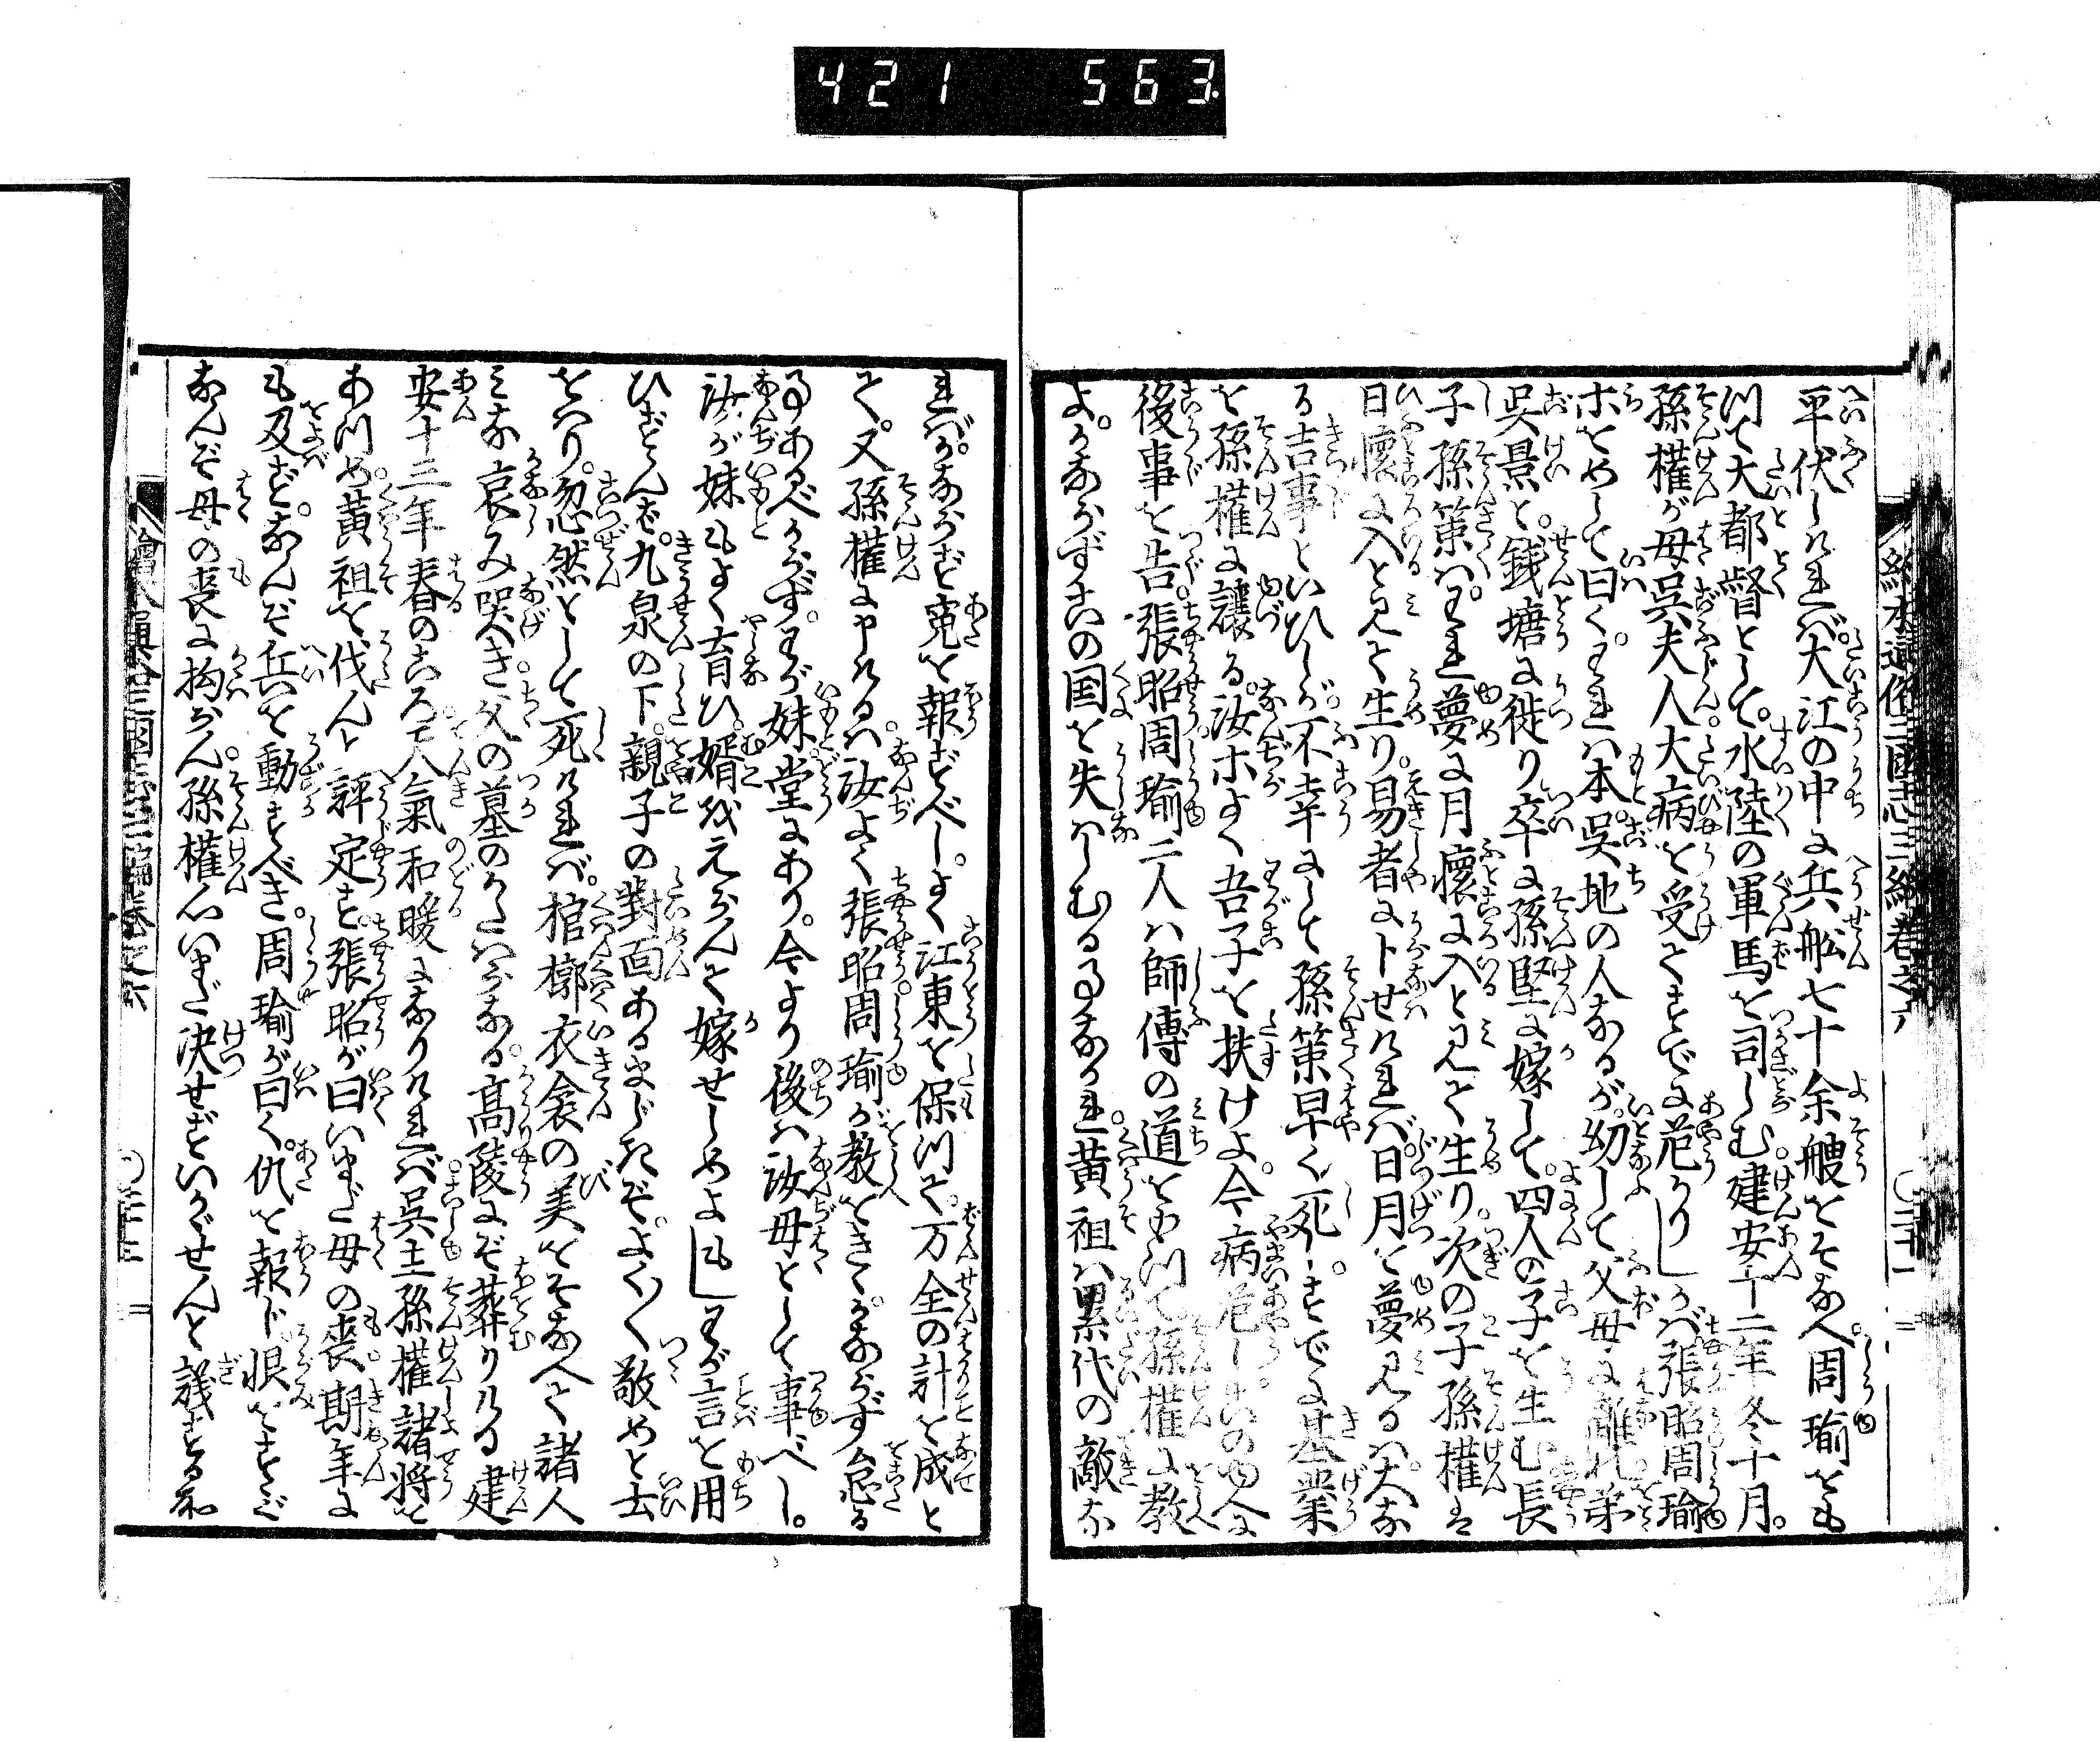 421 563
平伏しければ。大江の中に兵舩七十余艘をそなへ。周瑜をも
つて大都督として。水陸の軍馬を司しむ。建安十二年冬十月。
孫權が母呉夫人大病を受てすでに危かりしかば。張昭周瑜
ホをめして曰く。われは本呉地の人なるが。幼して父母に離れ。弟
呉景と。銭塘に徙り卒に孫堅に嫁して。四人の子を生む長
子孫策は。われ夢に月懷に入と見て生り。次の子孫權は
日懷に入と見て生り。易者に卜せければ。日月を夢見るは。大な
る吉事といひしが。不幸にして孫策早く死し。すでに基業
を孫權に譲る。汝ホよく吾子を扶けよ。今病危し。この内人に
後事を告。張昭周瑜二人は師傅の道をもつて孫權に教
よ。かならずこの国を失はしむる事なかれ。黄祖は累代の敵な
れば。かならず寃を報ずべし。よく江東を保つて。万全の計を成と
て。又孫權に申けるは。汝よく張昭周瑜が教をきく。かならず怠る
事あるべからず。わが妹堂にあり。今より後は汝母として事べし。
汝が妹もよく育ひ。婿を元らんで嫁せしめよもしわが言を用
ひずんば。九泉の下。親子の對面あるまじきぞ。よくよく敬めと云
をはり。忽然として死ければ。棺槨衣衾の美をそなへて諸人
みな哀み哭き。父の墓のかたはらなる。高陵にぞ葬りける建
安十三年春のころ。天氣和暖になりければ。呉主孫權諸将を
あつめ。黄祖を伐んと評定す。張昭が曰いまだ母の喪。期年に
も及ず。なんぞ兵を動すべき。周瑜が曰く。仇を報じ恨をすゝぐ
なんぞ母の喪に拘らん。孫權心いまだ決せず。いかゞせんと議する処